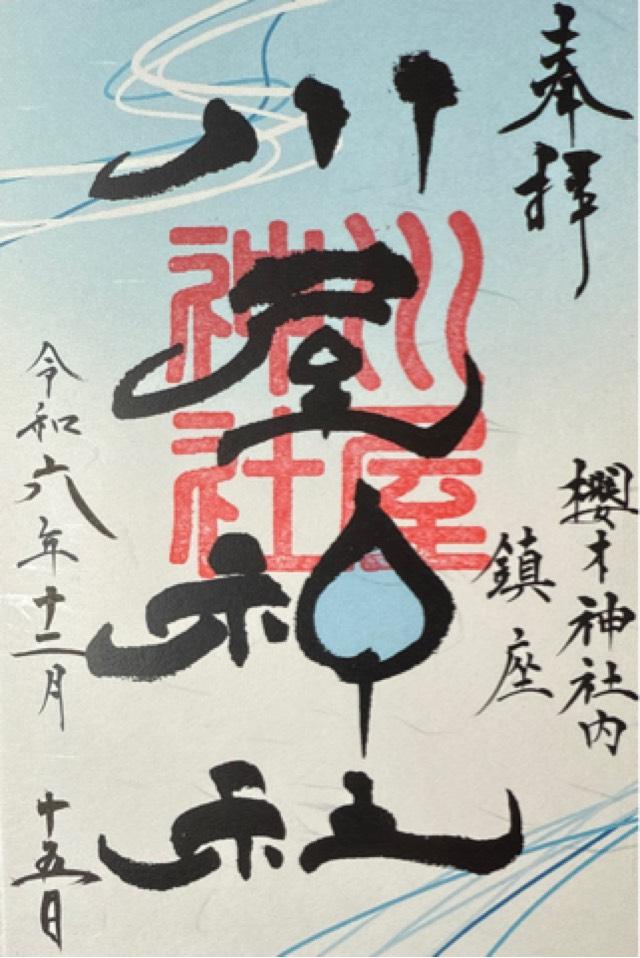 奉拝
櫻木神社内
鎮座
川屋神社
川屋神社
令和六年十二月十五日